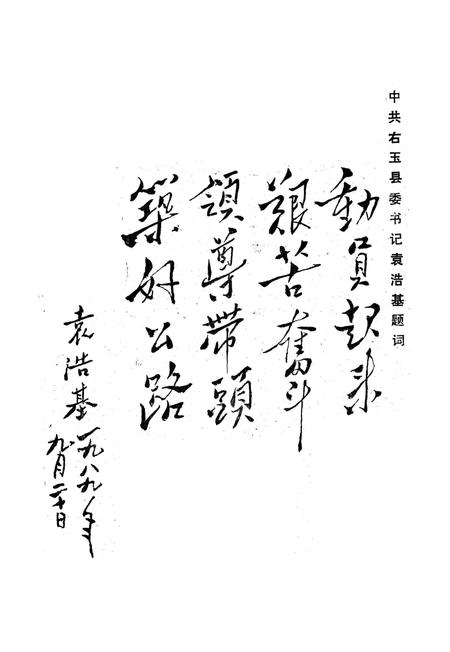 中共右玉县委书记袁浩基题词
動員起来
艰苦奮斗
領導带頭
築好公路
袁浩基
一九八九年
九月二十日